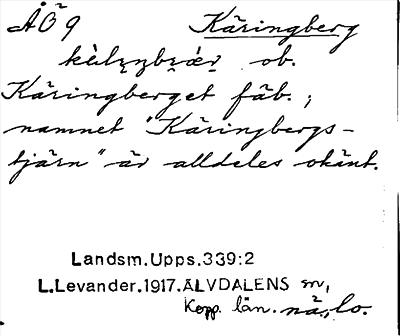 ÅÖ9 Käringberg
ob.
Käringberget fäb.;
namnet "Käringbergs-
tjärn" är alldeles okänt.
Landsm.Upps.339:2
L.Levander.1917.ÄLVDALENS sn,
Kopp. län.